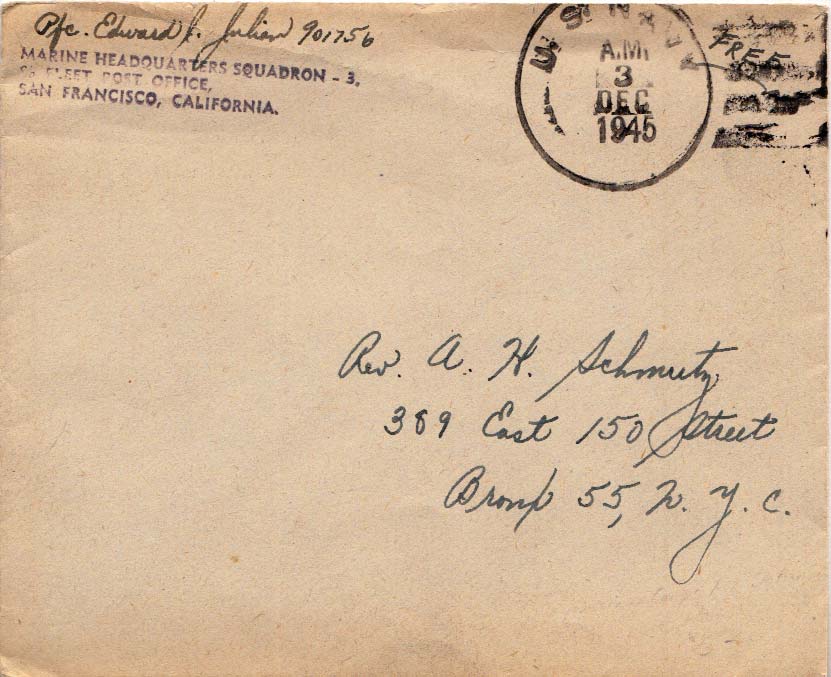 Pfc. Edward J. Julian 901756
MARINE HEADQUARTERS SQUADRON - 3,
℅ FLEET POST OFFICE,
SAN FRANCISCO, CALIFORNIA.
U.S. NAVY
A.M.
3
DEC
1945
FREE
Rev. A. H. Schmutz
389 East 150 Street
Bronx 55, N. Y. C.